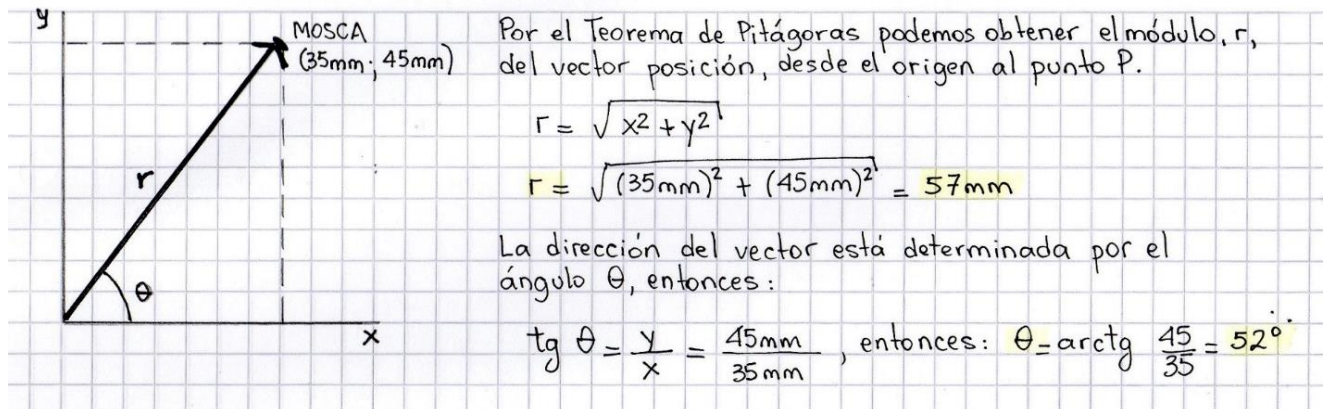 y
MOSCA
(35mm; 45mm)
r
θ
x
Por el Teorema de Pitágoras podemos obtener el módulo, r,
del vector posición, desde el origen al punto P.
r = √x² + y²
r = √(35mm)² + (45mm)² = 57mm
La dirección del vector está determinada por el
ángulo θ, entonces:
tg θ = y/x = 45mm/35mm, entonces: θ = arctg 45/35 = 52°